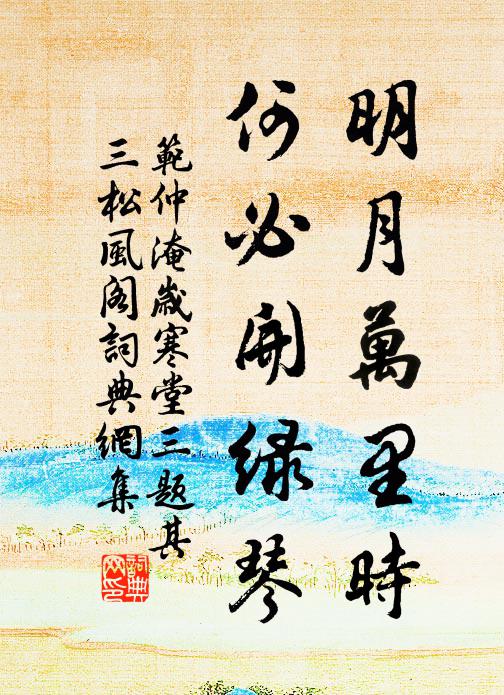 明月萬里時
何必開緑琴
範仲淹歲寒堂三題其
三松風阁詞典網集
詞典
网印